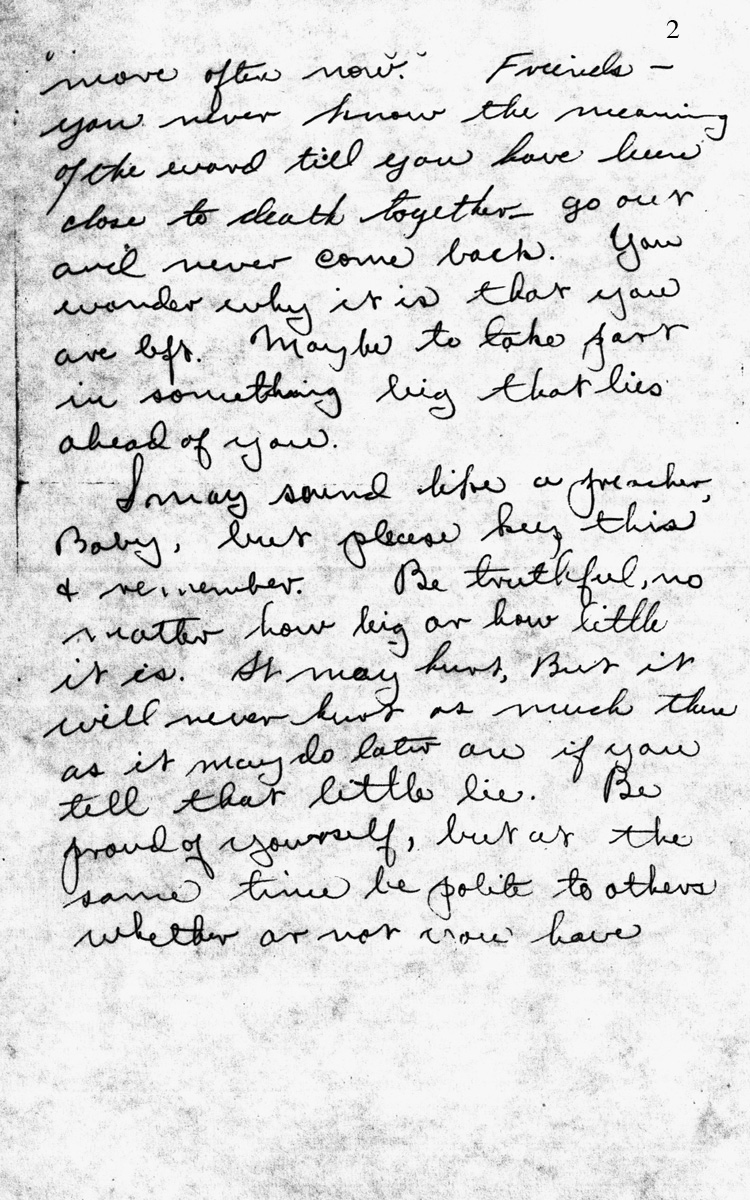 2
"more often now." Friends -
you never know the meaning
of the word till you have been
close to death together - go out
and never come back. You
wonder why it is that you
are left. Maybe to take part
in something big that lies
ahead of you.
I may sound like a preacher,
Baby, but please keep this
& remember. Be truthful, no
matter how big or how little
it is. It may hurt, But it
will never hurt as much then
as it may do later on if you
tell that little lie. Be
proud of yourself, but at the
same time be polite to others
whether or not you have